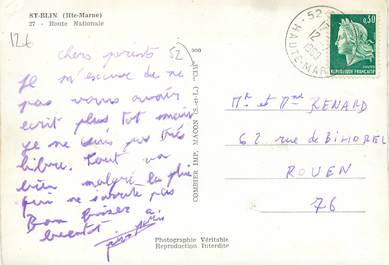 ST-BLIN (Hte-Marne)
27 - Route Nationale
126
52
chers parents
Je m'excuse de ne
pas vous avoir
ecrit plus tot mais
je ne suis pas très
libre. Tout va
bien malgré la pluie
qui ne s'arrete pas
Bons baisers a
bientot
COMBIER IMP. MACON (S.-et-L.) "CIM"
Mr et Mme RENARD
62 rue de BIHOREL
ROUEN
76
52
HAUTE-MAR
0,30
Photographie Véritable
Reproduction Interdite